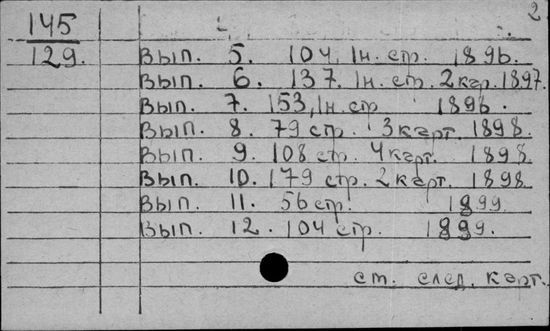 2
145
129.
Вып. 5. 104, 1н. стр. 1896.
Вып. 6. 137. 1н. стр. 2 кар. 1897.
Вып. 7. 153, 1н. стр 1896.
Вып. 8. 79 стр. 3 карт. 1898.
Вып. 9. 108 стр. 4 карт. 1898.
Вып. 10. 179 стр. 2 карт. 1898.
Вып. 11. 56 стр. 1899.
Вып. 12. 104 стр. 1899.
ст. след. карт.